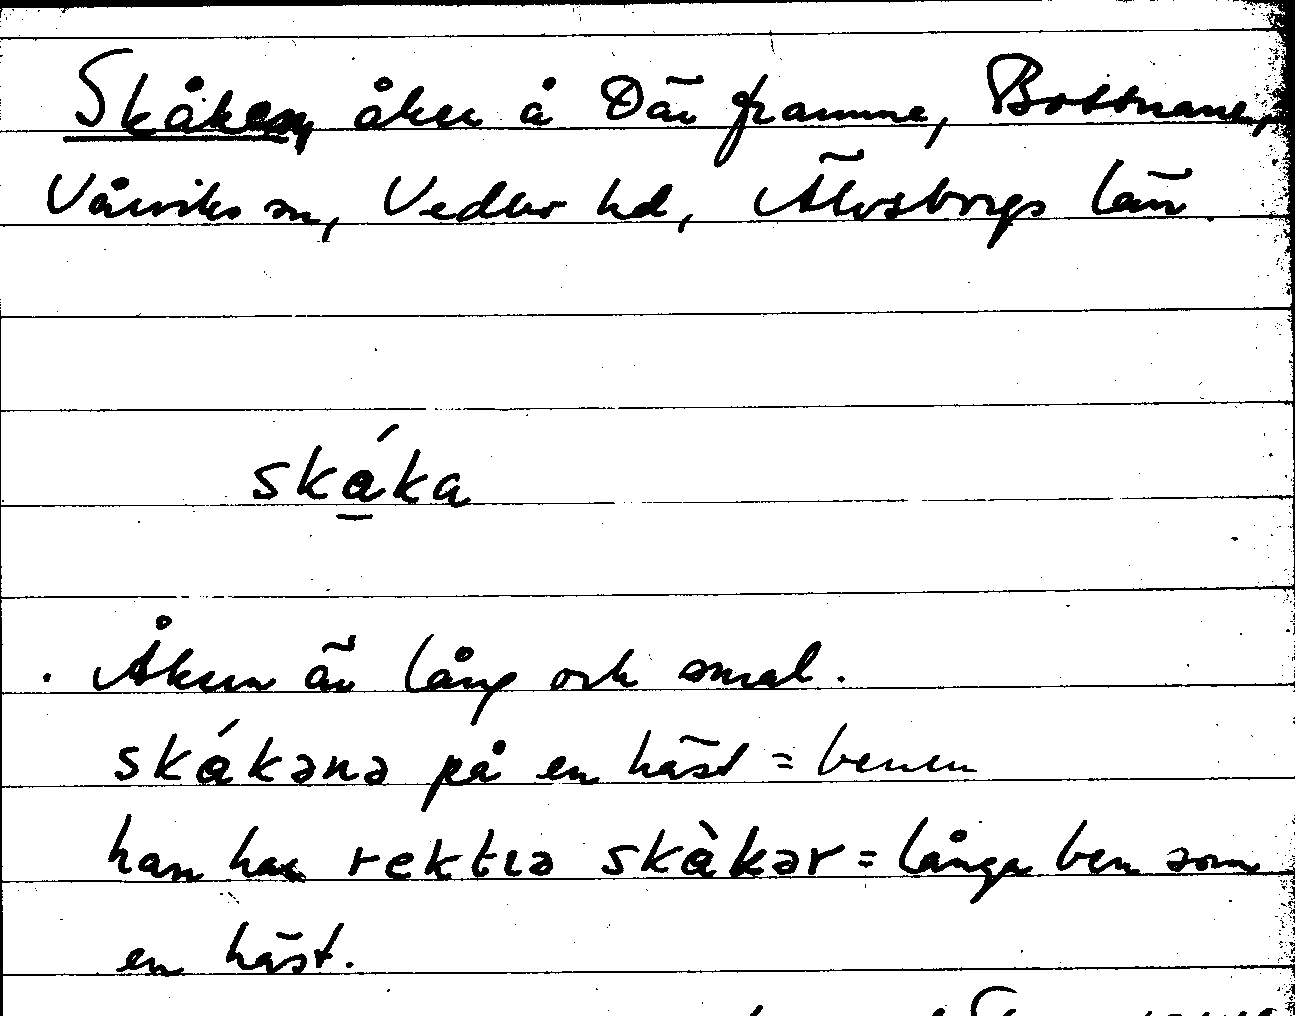 Skåken, åker å Där framme, Bottnane,
Vårviks sn, Vedbo hd, Älvsborgs län.
skáka
Åkern är lång och smal.
skákəna på en häst = benen
han har rektıa skàkər = långa ben som
en häst.